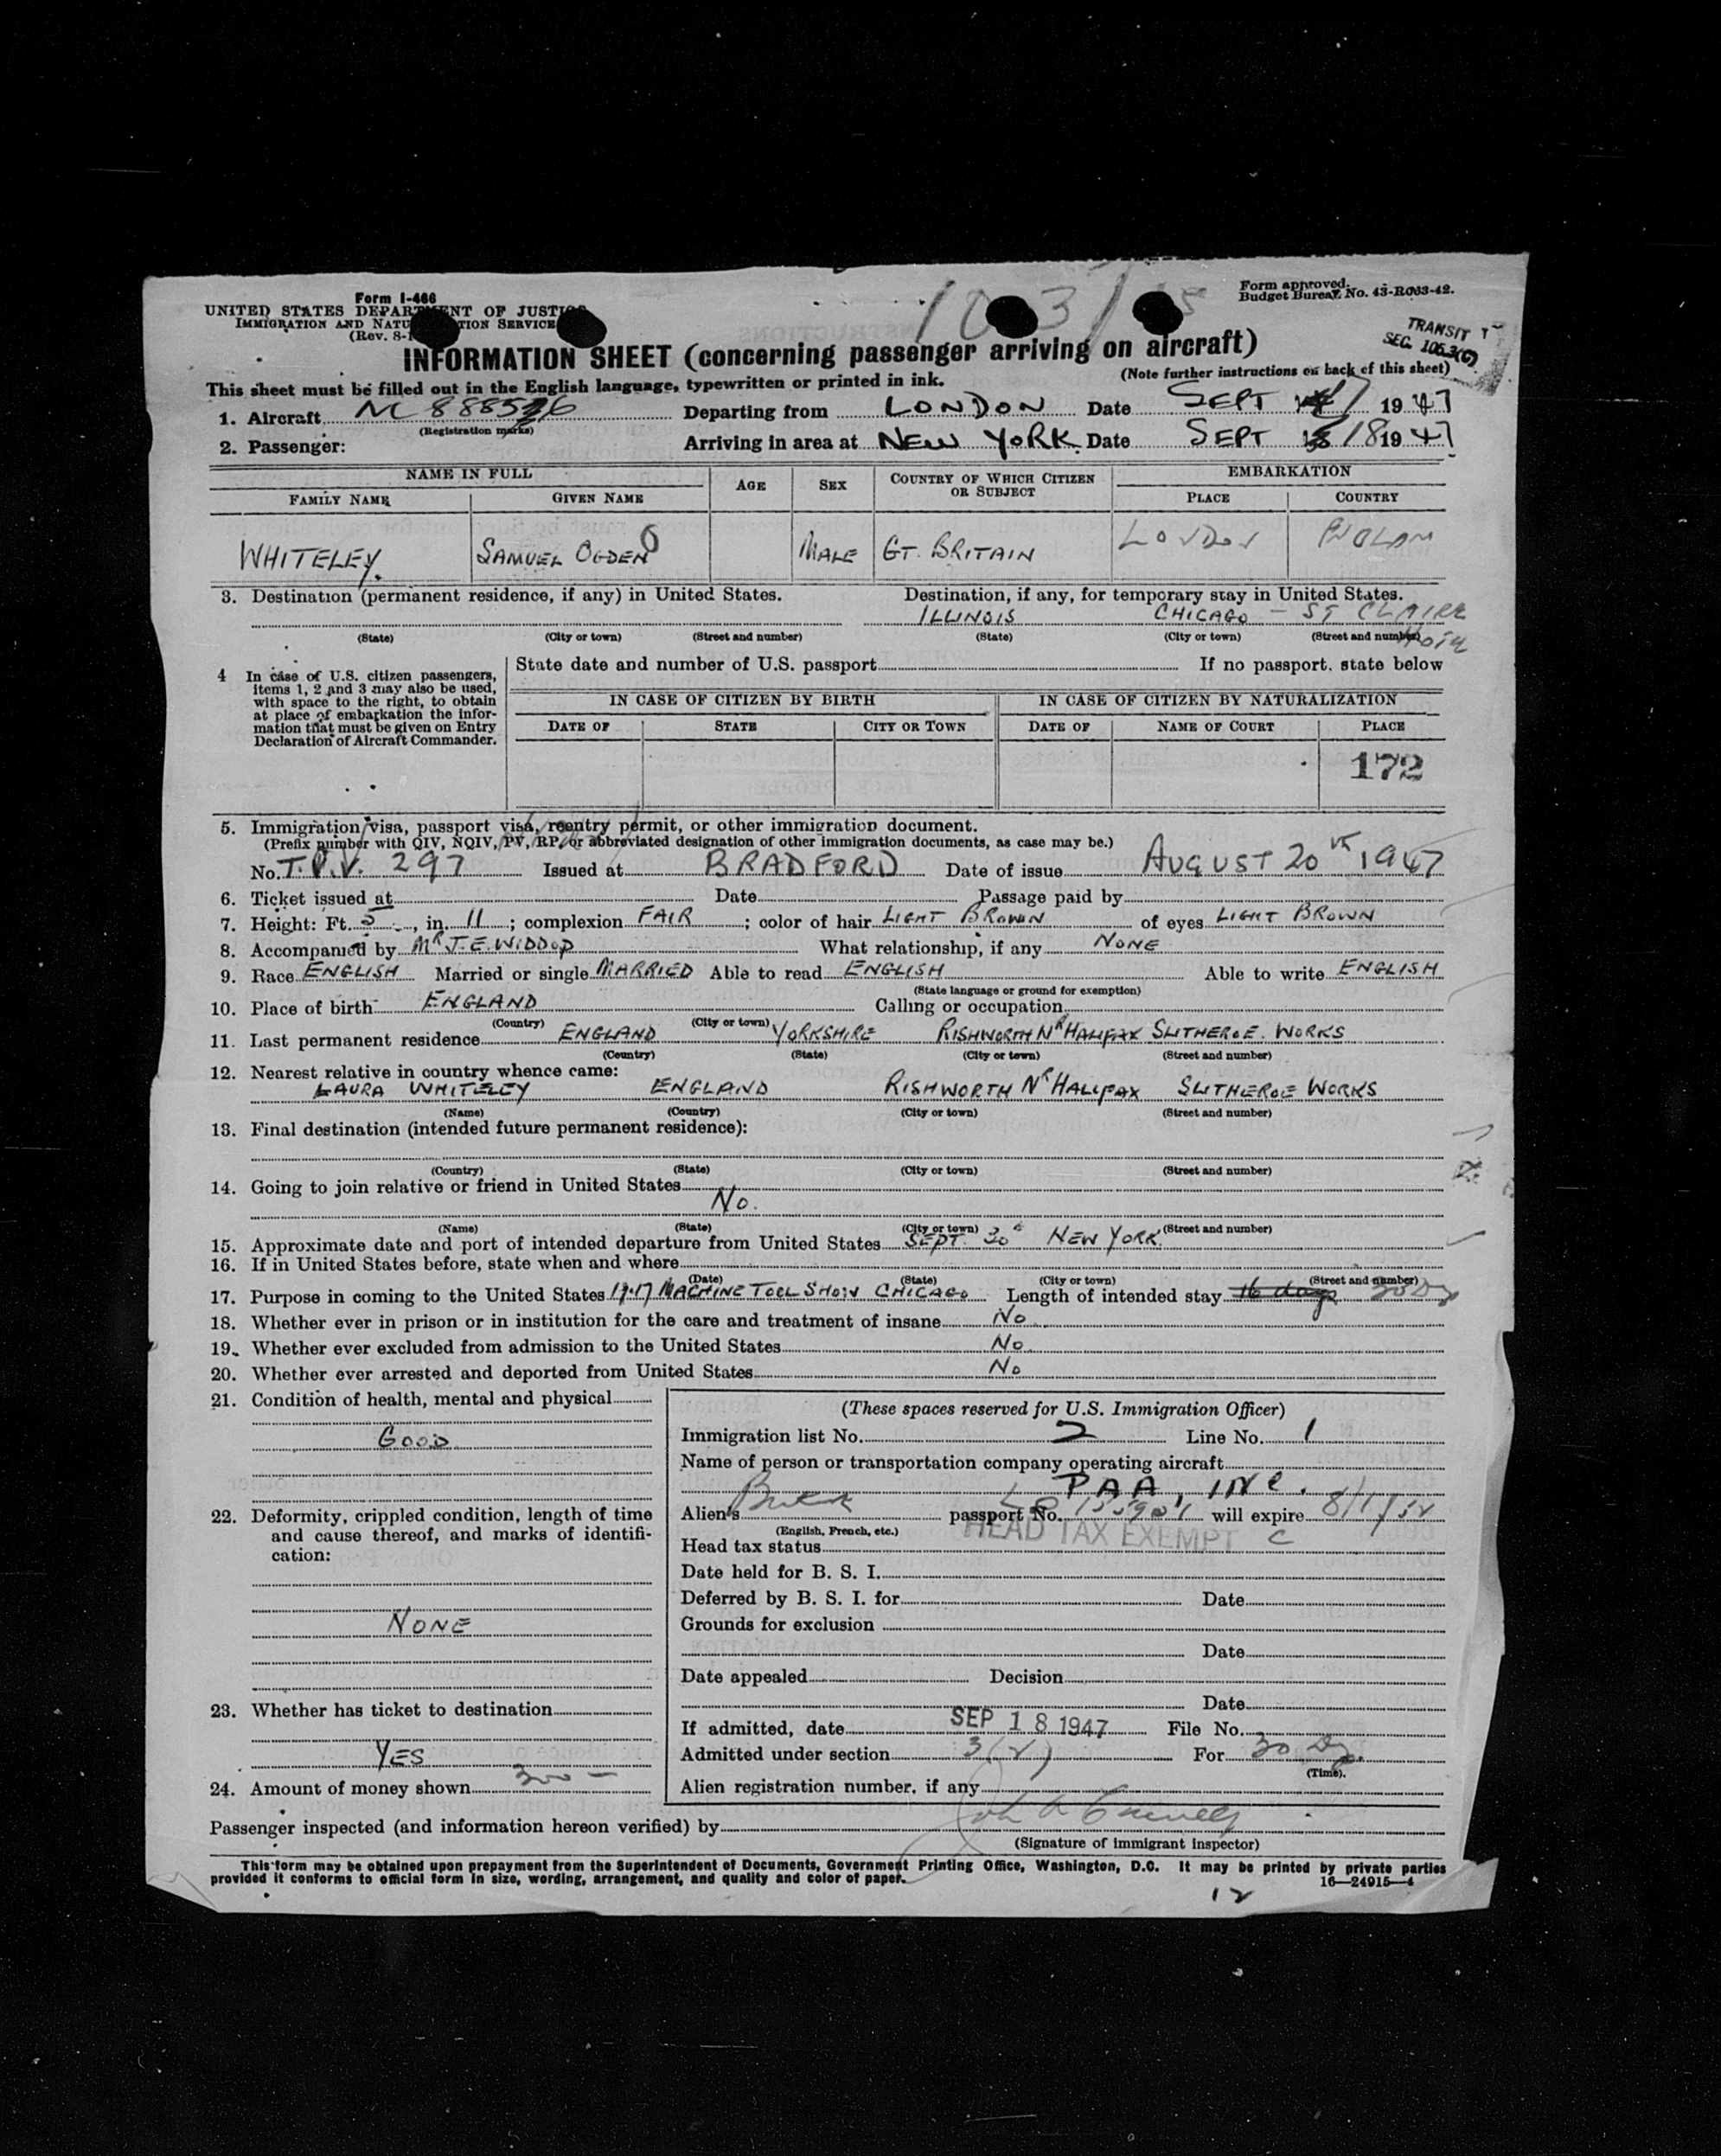 Form I-466
UNITED STATES DEPARTMENT OF JUSTICE
IMMIGRATION AND NATU TION SERVICE
(Rev. 8-1
Form approved.
Budget Bureau No. 43-R063-42.
TRANSIT
SEC. 106.3(G)
INFORMATION SHEET (concerning passenger arriving on aircraft)
This sheet must be filled out in the English language, typewritten or printed in ink.
(Note further instructions on back of this sheet)
1. Aircraft NC 88856 Departing from LONDON Date SEPT 17 1947
(Registration marks)
2. Passenger: Arriving in area at NEW YORK. Date SEPT 18 1947
NAME IN FULL AGE SEX COUNTRY OF WHICH CITIZEN OR SUBJECT EMBARKATION
FAMILY NAME GIVEN NAME PLACE COUNTRY
WHITELEY. SAMUEL OGDEN MALE GT. BRITAIN LONDON
3. Destination (permanent residence, if any) in United States. Destination, if any, for temporary stay in United States.
ILLINOIS CHICAGO - ST CLAIRE
(State) (City or town) (Street and number) (State) (City or town) (Street and number)
4 In case of U.S. citizen passengers, items 1, 2 and 3 may also be used, with space to the right, to obtain at place of embarkation the information that must be given on Entry Declaration of Aircraft Commander.
State date and number of U.S. passport If no passport, state below
IN CASE OF CITIZEN BY BIRTH IN CASE OF CITIZEN BY NATURALIZATION
DATE OF STATE CITY OR TOWN DATE OF NAME OF COURT PLACE
172
5. Immigration visa, passport visa, reentry permit, or other immigration document.
(Prefix number with QIV, NQIV, PV, RP, or abbreviated designation of other immigration documents, as case may be.)
No. T.P.V. 297 Issued at BRADFORD Date of issue AUGUST 20th 1947
6. Ticket issued at Date Passage paid by
7. Height: Ft. 5, in. 11; complexion FAIR; color of hair LIGHT BROWN of eyes LIGHT BROWN
8. Accompanied by Mr J.E. WIDDOP What relationship, if any NONE
9. Race ENGLISH Married or single MARRIED Able to read ENGLISH Able to write ENGLISH
(State language or ground for exemption)
10. Place of birth ENGLAND Calling or occupation
(Country) (City or town)
11. Last permanent residence ENGLAND YORKSHIRE RISHWORTH Nr HALIFAX SLITHEROE. WORKS
(Country) (State) (City or town) (Street and number)
12. Nearest relative in country whence came:
LAURA WHITELEY ENGLAND RISHWORTH Nr HALIFAX SLITHEROE WORKS
(Name) (Country) (City or town) (Street and number)
13. Final destination (intended future permanent residence):
(Country) (State) (City or town) (Street and number)
14. Going to join relative or friend in United States
No.
(Name) (State) (City or town) (Street and number)
15. Approximate date and port of intended departure from United States SEPT. 30 NEW YORK.
16. If in United States before, state when and where
(Date) (State) (City or town) (Street and number)
17. Purpose in coming to the United States MACHINE TOOL SHOW CHICAGO Length of intended stay 16 days 30 Dys
18. Whether ever in prison or in institution for the care and treatment of insane No
19. Whether ever excluded from admission to the United States No
20. Whether ever arrested and deported from United States No
21. Condition of health, mental and physical
GOOD
22. Deformity, crippled condition, length of time and cause thereof, and marks of identification:
NONE
23. Whether has ticket to destination
YES
24. Amount of money shown 300 -
(These spaces reserved for U.S. Immigration Officer)
Immigration list No. 2 Line No. 1
Name of person or transportation company operating aircraft
PAA, INC.
Alien's passport No. will expire 8/1/52
(English, French, etc.)
HEAD TAX EXEMPT C
Head tax status
Date held for B. S. I.
Deferred by B. S. I. for Date
Grounds for exclusion
Date
Date appealed Decision
Date
If admitted, date SEP 18 1947 File No.
Admitted under section 3(2) For 30 Dys.
(Time).
Alien registration number, if any
Passenger inspected (and information hereon verified) by
(Signature of immigrant inspector)
This form may be obtained upon prepayment from the Superintendent of Documents, Government Printing Office, Washington, D.C. It may be printed by private parties
provided it conforms to official form in size, wording, arrangement, and quality and color of paper.
16—24915-4
12